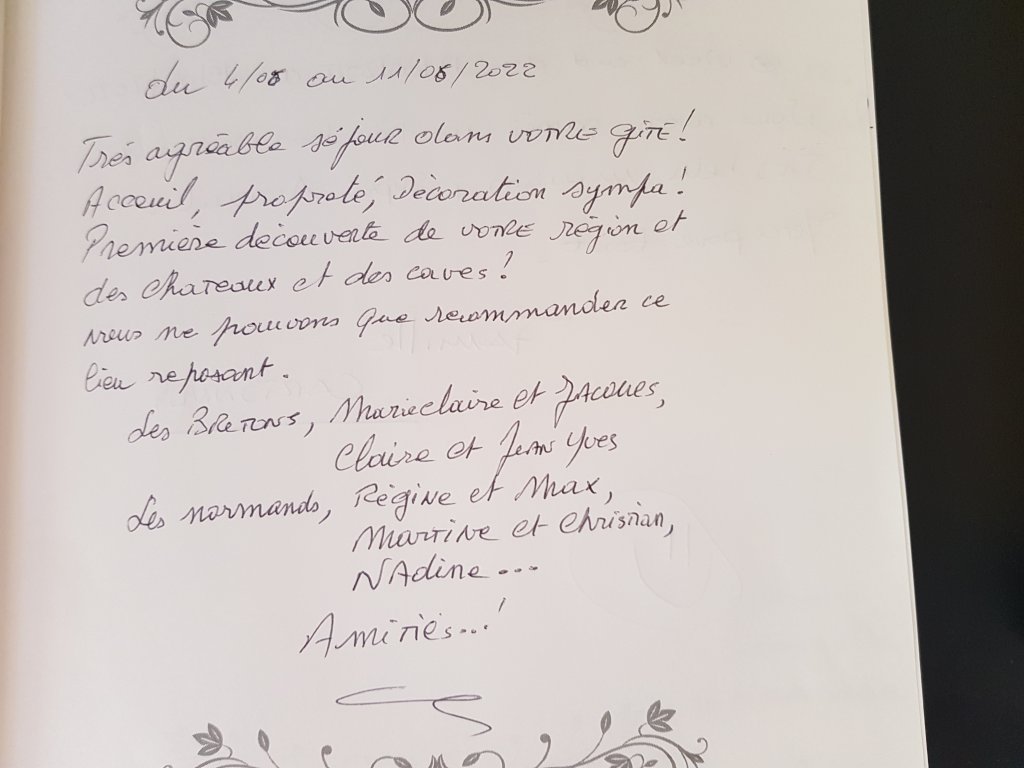 du 4/06 au 11/06/2022
Très agréable séjour dans votre gîte !
Acceuil, propreté, Décoration sympa !
Première découverte de votre région et
des chateaux et des caves !
nous ne pouvons que recommander ce
lieu reposant.
Les Bretons, Marieclaire et Jacques,
Claire et Jean Yves
Les normands, Régine et Max,
Martine et Christian,
Nadine ...
Amitiés...!